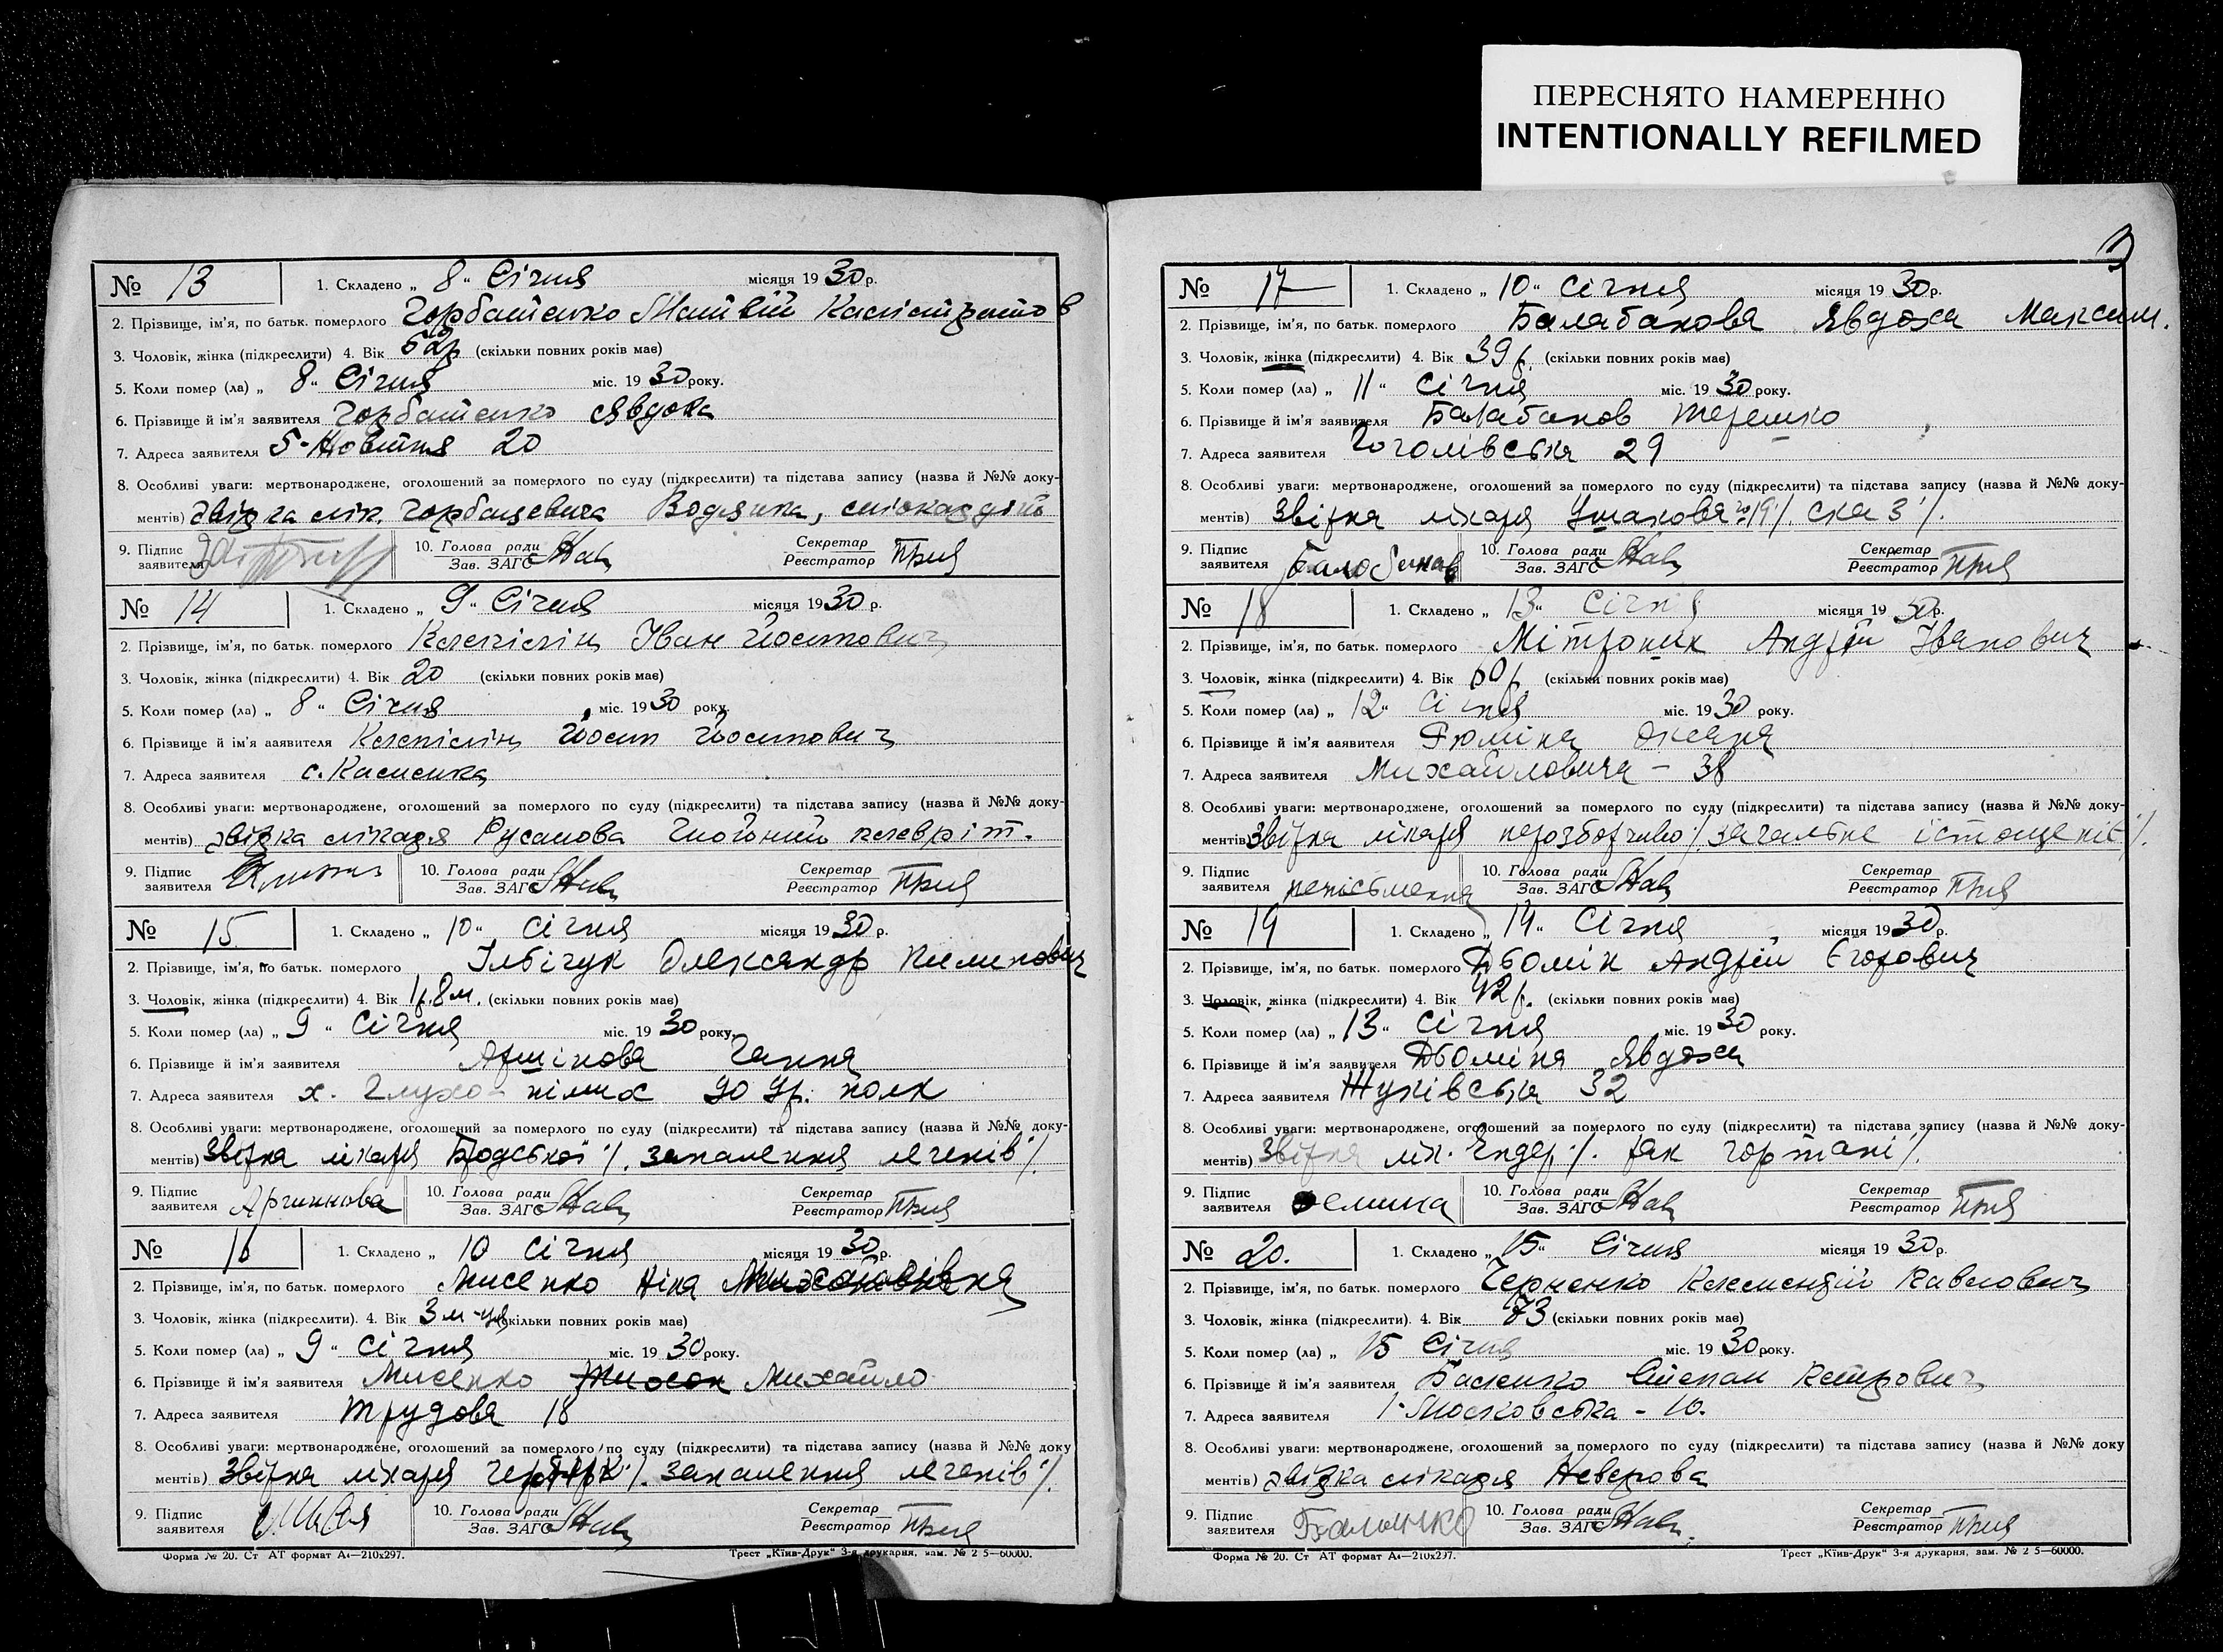 ПЕРЕСНЯТО НАМЕРЕННО
INTENTIONALLY REFILMED
№ 13 1. Складено „ 8 “ Січня місяця 19 30 р.
2. Прізвище, ім'я, по батьк. померлого Горбатенко Матвій
3. Чоловік, жінка (підкреслити) 4. Вік 52р (скільки повних років має)
5. Коли помер (ла) „ 8 “ Січня міс. 19 30 року.
6. Прізвище й ім'я заявителя Горбатенко Явдоха
7. Адреса заявителя 5-Новітня 20
8. Особливі уваги: мертвонароджене, оголошений за померлого по суду (підкреслити) та підстава запису (назва й №№ доку-
ментів) звідка лік. Горбацевича Водянка,
9. Підпис заявителя 10. Голова ради Зав. ЗАГС Секретар Реєстратор
№ 14 1. Складено „ 9 “ Січня місяця 19 30 р.
2. Прізвище, ім'я, по батьк. померлого Іван Йосипович
3. Чоловік, жінка (підкреслити) 4. Вік 20 (скільки повних років має)
5. Коли помер (ла) „ 8 “ Січня міс. 19 30 року.
6. Прізвище й ім'я заявителя Йосип Йосипович
7. Адреса заявителя с.
8. Особливі уваги: мертвонароджене, оголошений за померлого по суду (підкреслити) та підстава запису (назва й №№ доку-
ментів) звідка лікаря Русанова Гнойний плеврит.
9. Підпис заявителя 10. Голова ради Зав. ЗАГС Секретар Реєстратор
№ 15 1. Складено „ 10 “ Січня місяця 19 30 р.
2. Прізвище, ім'я, по батьк. померлого Ільбічук Олександр Пилипович
3. Чоловік, жінка (підкреслити) 4. Вік 1р. 8м. (скільки повних років має)
5. Коли помер (ла) „ 9 “ Січня міс. 19 30 року.
6. Прізвище й ім'я заявителя Аршінова Ганна
7. Адреса заявителя х. Глухо-німих 90 Ур. полк
8. Особливі уваги: мертвонароджене, оголошений за померлого по суду (підкреслити) та підстава запису (назва й №№ доку-
ментів) Звідка лікаря Бродської %. запалення легенів %.
9. Підпис заявителя Аршинова 10. Голова ради Зав. ЗАГС Секретар Реєстратор
№ 16 1. Складено „ 10 Січня місяця 19 30 р.
2. Прізвище, ім'я, по батьк. померлого Лисенко Ніна Михайлівна
3. Чоловік, жінка (підкреслити). 4. Вік 3 м-ця (скільки повних років має)
5. Коли помер (ла) „ 9 “ Січня міс. 19 30 року.
6. Прізвище й ім'я заявителя Лисенко Михайло
7. Адреса заявителя Трудова 18
8. Особливі уваги: мертвонароджене, оголошений за померлого по суду (підкреслити) та підстава запису (назва й №№ доку
ментів) Звідка лікаря %. запалення легенів %.
9. Підпис заявителя 10. Голова ради Зав. ЗАГС Секретар Реєстратор
Форма № 20. Ст АТ формат А4—210х297. Трест „Київ-Друк“ 3-я друкарня, зам. № 2 5—60000.
№ 17 1. Складено „ 10 “ Січня місяця 19 30 р.
2. Прізвище, ім'я, по батьк. померлого Балабанова Явдоха Максим.
3. Чоловік, жінка (підкреслити) 4. Вік 39 р. (скільки повних років має)
5. Коли помер (ла) „ 11 “ Січня міс. 19 30 року.
6. Прізвище й ім'я заявителя Балабанов Терешко
7. Адреса заявителя Гоголівська 29
8. Особливі уваги: мертвонароджене, оголошений за померлого по суду (підкреслити) та підстава запису (назва й №№ доку-
ментів) Звідка лікаря Ушакова
9. Підпис заявителя 10. Голова ради Зав. ЗАГС Секретар Реєстратор
№ 18 1. Складено „ 13 “ Січня місяця 19 30 р.
2. Прізвище, ім'я, по батьк. померлого Мітроник Андрій Іванович
3. Чоловік, жінка (підкреслити) 4. Вік (скільки повних років має)
5. Коли помер (ла) „ 12 “ Січня міс. 19 30 року.
6. Прізвище й ім'я заявителя Рюміна Оксана
7. Адреса заявителя Михайловича - 38
8. Особливі уваги: мертвонароджене, оголошений за померлого по суду (підкреслити) та підстава запису (назва й №№ доку-
ментів) Звідка лікаря нерозбірчиво %. загальне істощеніє %.
9. Підпис заявителя неписьменна 10. Голова ради Зав. ЗАГС Секретар Реєстратор
№ 19 1. Складено „ 14 “ Січня місяця 19 30 р.
2. Прізвище, ім'я, по батьк. померлого Дьомін Андрій Єгорович
3. Чоловік, жінка (підкреслити) 4. Вік 42 р. (скільки повних років має)
5. Коли помер (ла) „ 13 “ Січня міс. 19 30 року.
6. Прізвище й ім'я заявителя Дьоміна Явдоха
7. Адреса заявителя Жуківська 32
8. Особливі уваги: мертвонароджене, оголошений за померлого по суду (підкреслити) та підстава запису (назва й №№ доку-
ментів) Звідка лік. Ендер %. рак гортані %.
9. Підпис заявителя 10. Голова ради Зав. ЗАГС Секретар Реєстратор
№ 20. 1. Складено „ 15 “ Січня місяця 19 30 р.
2. Прізвище, ім'я, по батьк. померлого Черненко Клементій Павлович
3. Чоловік, жінка (підкреслити). 4. Вік 73 (скільки повних років має)
5. Коли помер (ла) „ 15 Січня міс. 19 30 року.
6. Прізвище й ім'я заявителя Степан Петрович
7. Адреса заявителя 1-Московська - 10.
8. Особливі уваги: мертвонароджене, оголошений за померлого по суду (підкреслити) та підстава запису (назва й №№ доку
ментів) звідка лікаря Невєрова
9. Підпис заявителя 10. Голова ради Зав. ЗАГС Секретар Реєстратор
Форма № 20. Ст АТ формат А4—210х297. Трест „Київ-Друк“ 3-я друкарня, зам. № 2 5—60000.